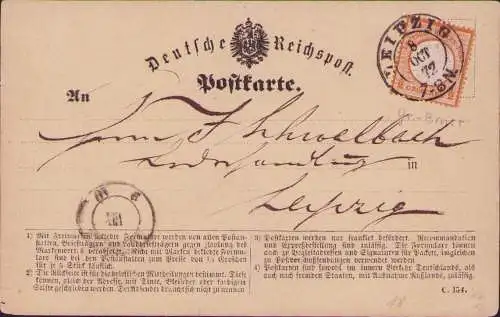 Deutsche Reichspost.
Postkarte.
LEIPZIG
8
OCT
72
7-8 N.
An
Herrn F. Schwalbach
in
Leipzig
1) Mit Freimarken beklebte Formulare werden von allen Postanstalten,
Briefträgern und Landbriefträgern gegen Zahlung des
Markenwerths abgelassen. Nicht mit Marken beklebte Formulare
sind bei den Postanstalten zum Preise von ½ Groschen
für je 5 Stück käuflich.
2) Die Rückseite ist für die brieflichen Mittheilungen bestimmt. Diese
können, ebenso wie die Adresse, mit Tinte, Bleifeder oder farbigem
Stifte geschrieben werden. Der Absender braucht sich nicht zu nennen
3) Postkarten werden nur frankirt befördert. Recommandation
und Expreßbestellung sind zulässig. Die Formulare können
auch zu Begleitadressen und Signaturen für Packete, imgleichen
zu Postvorschußsendungen verwendet werden.
4) Postkarten sind sowohl im innern Verkehr Deutschlands, als
auch nach fremden Staaten, mit Ausnahme Rußlands, zulässig.
C. 154.